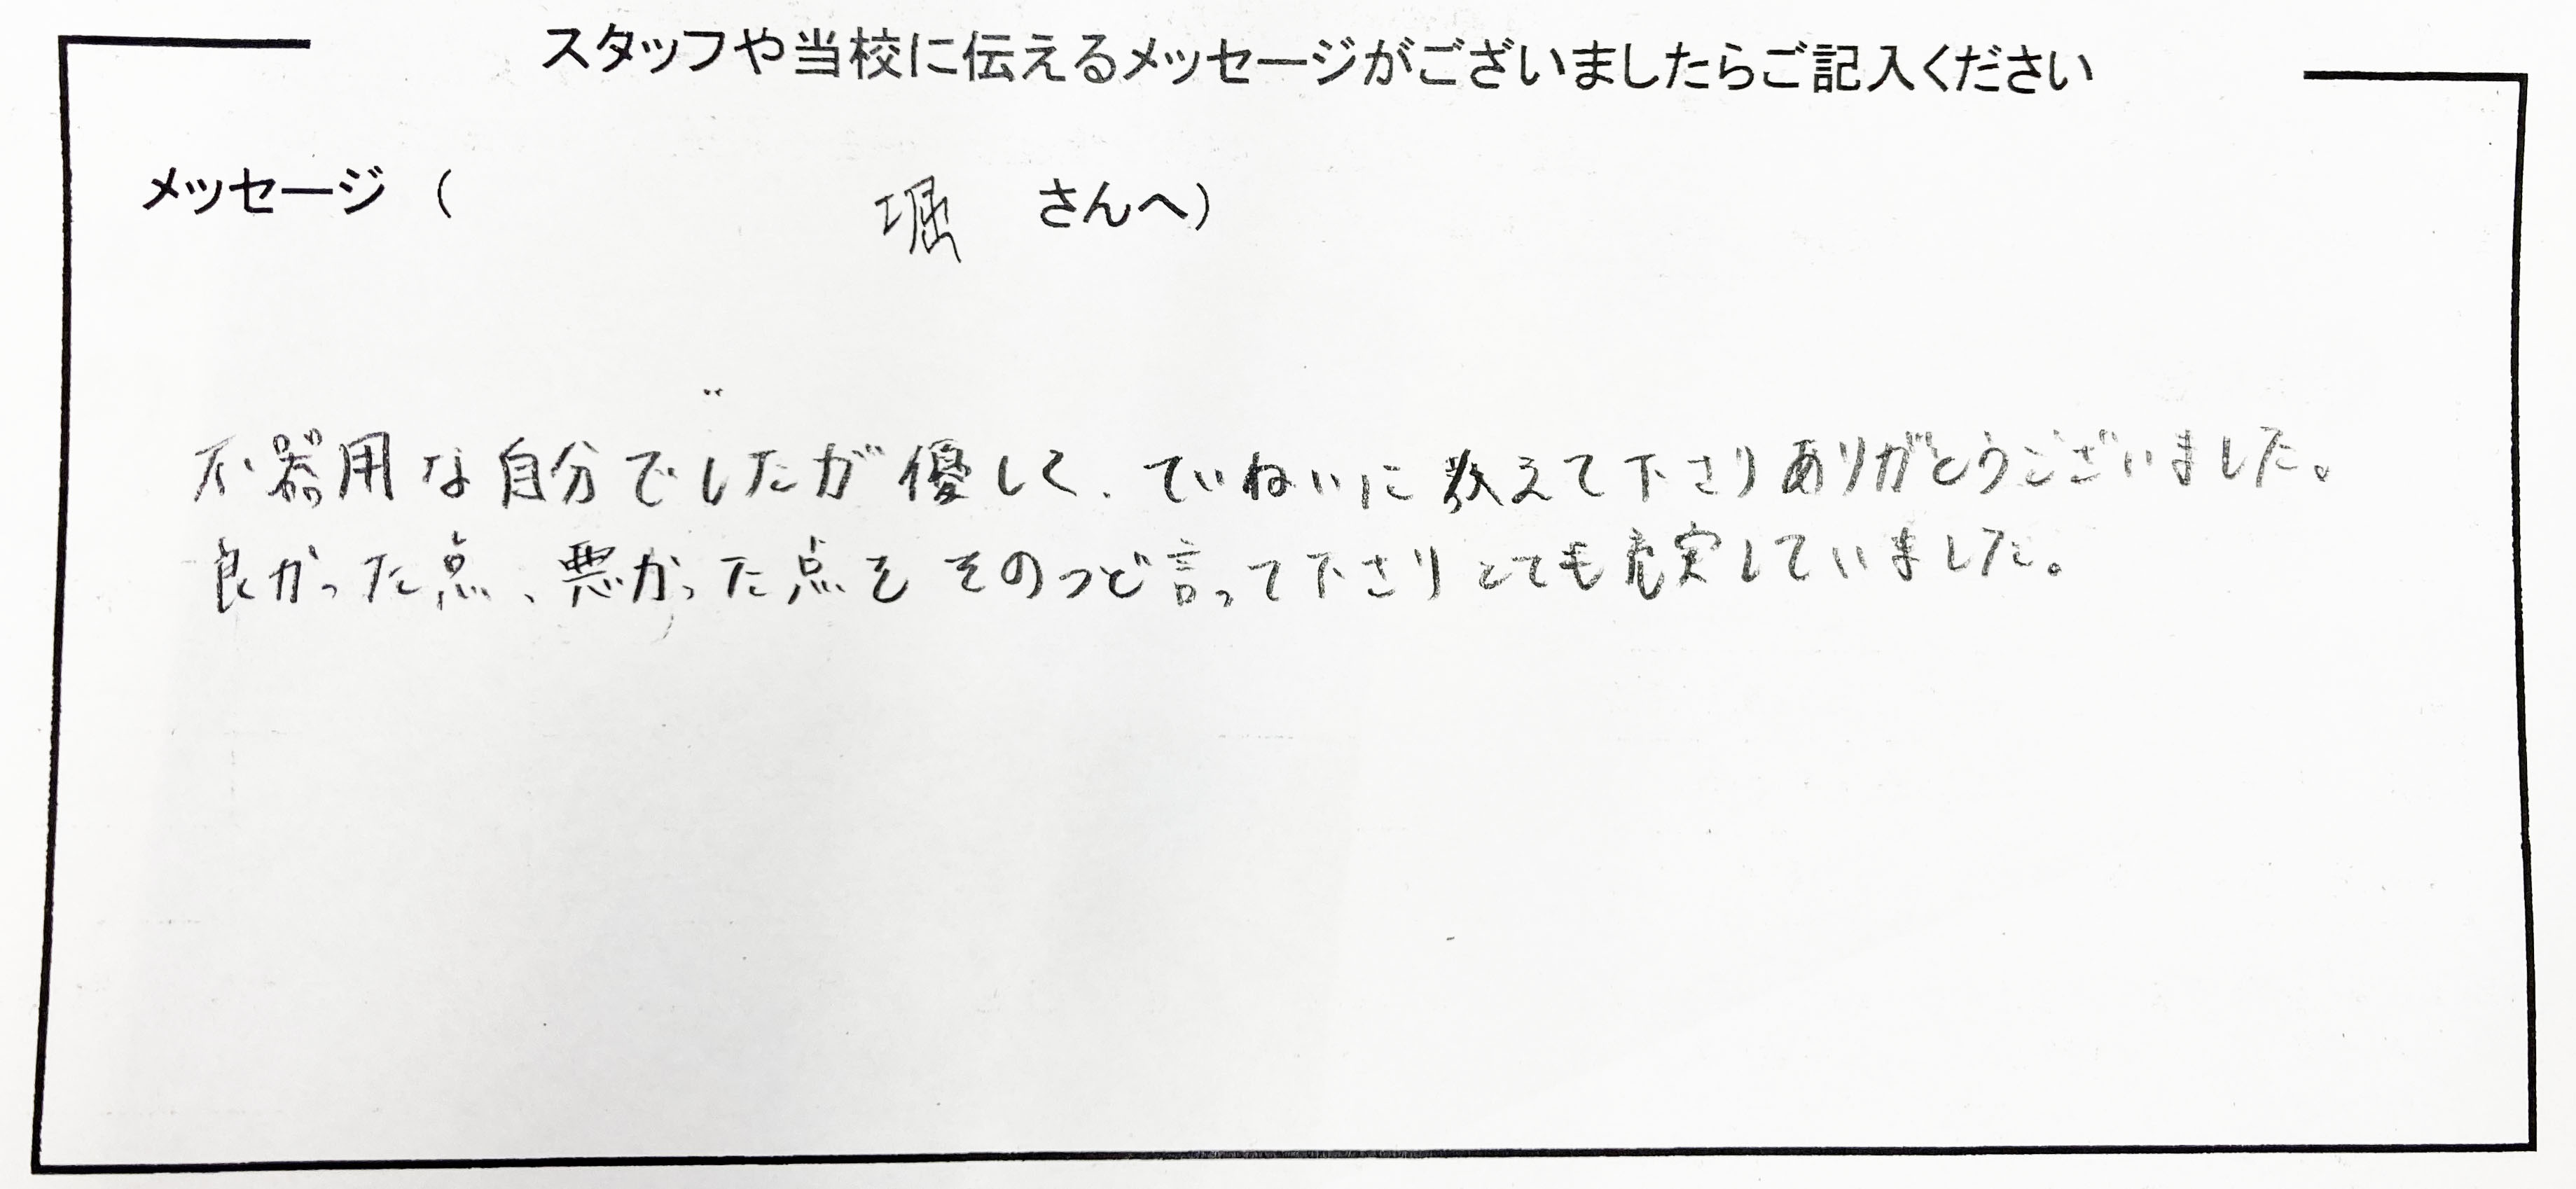 スタッフや当校に伝えるメッセージがございましたらご記入ください
メッセージ ( 堀 さんへ)
不器用な自分でしたが優しく、ていねいに教えて下さりありがとうございました。
良かった点、悪かった点をそのつど言って下さりとても充実していました。